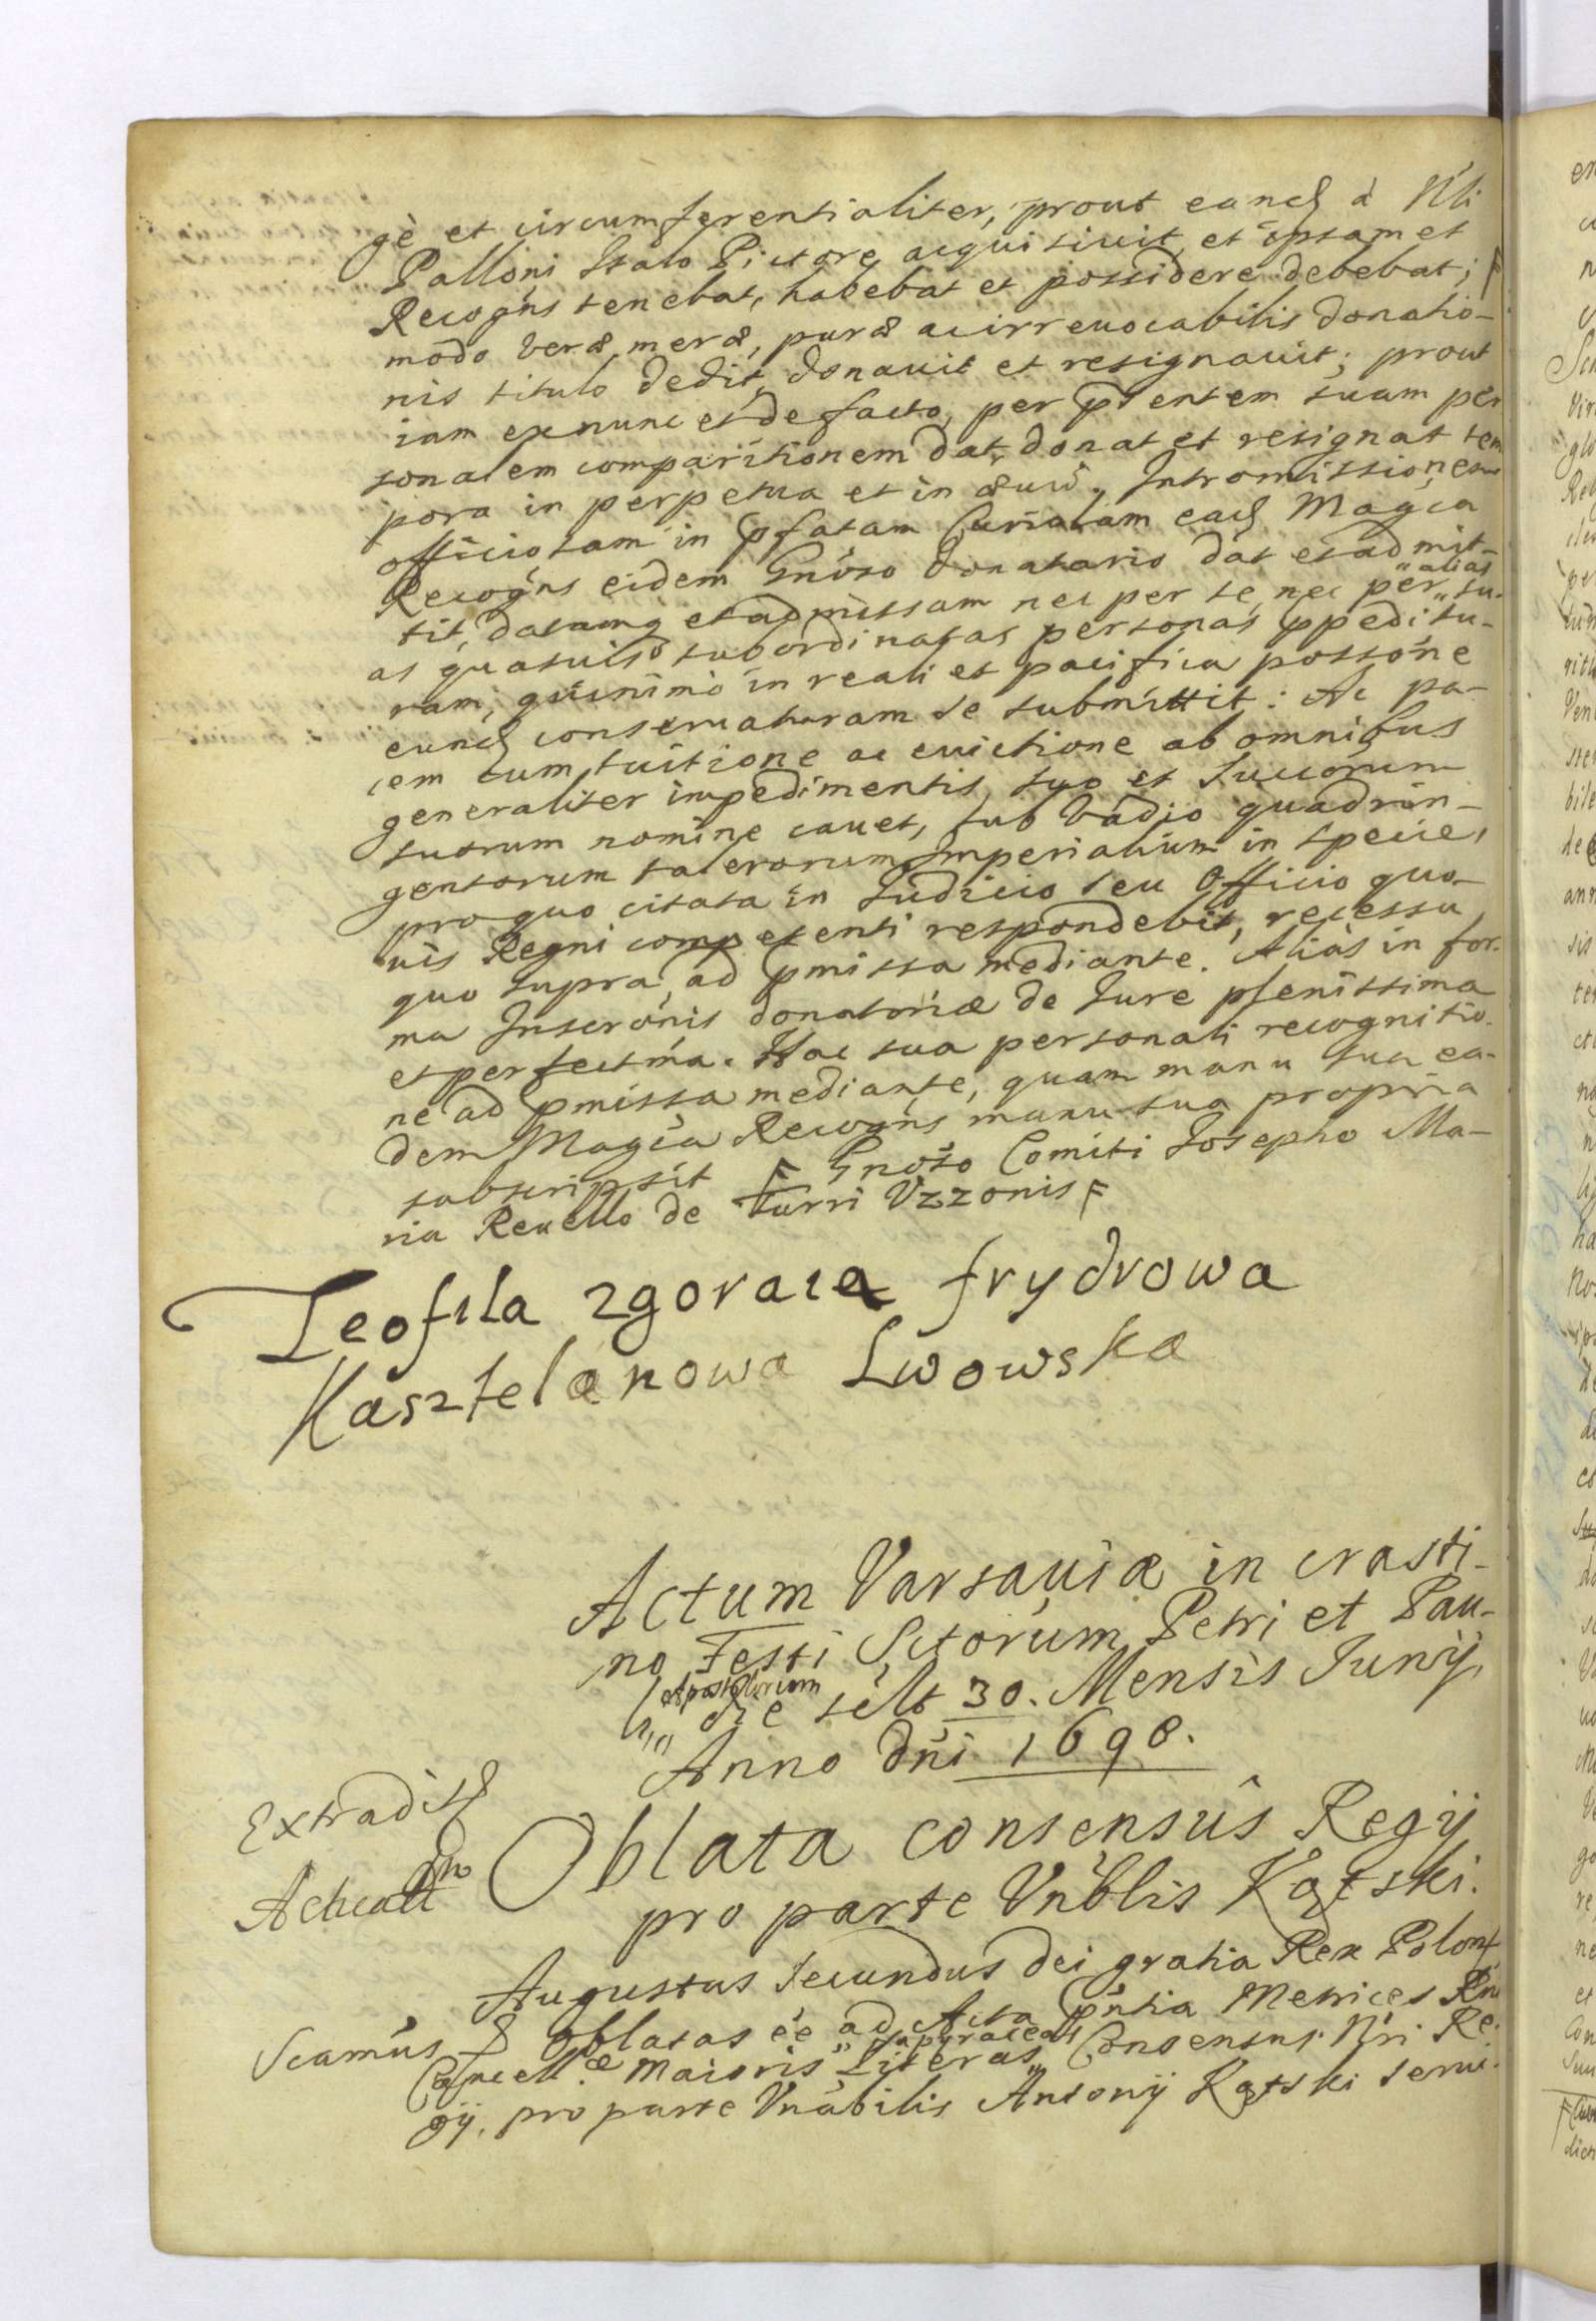 gè et circumferentialiter, prout eand à Nli
Palloni Italo Pictore acquisiuit, et ipsamet
Recogńs tenebat, habebat et possidere debebat; F
modo veræ, meræ, puræ ac irreuocabilis donatio-
nis titulo dedit, donauit et resignauit; prout
iam exnunc et de facto, per pńtem suam per
sonalem comparitionem dat, donat et resignat tem
pora in perpetua et in æuū. Intromissionem
officiosam in pfatam Curiālam ead Magca
Recogńs eidem Gnóso Donatario dat et admit-
tit, datamq et admissam nec per se, nec per "alias" su-
as quasuis subordinatas personas ppeditu-
ram; quinimò in reali et pacifica possóne
eund conseruaturam se submittit: Ac pa-
cem cum tuitione ac euictione ab omnibus
generaliter impedimentis, suo et Succorum
suorum nomine cauet, sub vadio quadrin-
gentorum talerorum Imperialium in specie,
pro quo citata in Iudicio seu Officio quo-
uis Regni competenti respondebit, recessu
quo supra ad pmissa mediante. Aliàs in for-
ma Inscrónis donatoriæ de Iure plenissima
et perfectma. Hac sua personali recognitio-
ne ad pmissa mediante, quam manu sua ea-
dem Magca Recogńs manu sua propria
subscripsit F Gnóso Comiti Iosepho Ma-
ria Reuello de Turri Vzzonis F
Teofila zgoraia frydrowa
Kasztelanowa Lwowska
Actum Varsauiæ in crasti-
no Festi Sctorum Petri et Pau-
li "Apostolorum" die scilt 30. Mensis Iunij
Anno dni 1698.
Extradit
Oblata consensûs Regij
pro parte Vnblis Kątski.
Augustus Secundus Dei gratia Rex Polon
Scamus oblatas ee ad Acta pntia Metrices Rni
Cancellæ Maioris "papyraceas" Literas Consensus Nri Re-
gij, pro parte Vnabilis Antonij Kątski serui-